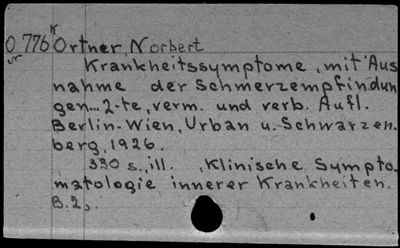 K
O 776 Ortner, Norbert
vr
Krankheitssymptome, mit Aus
nahme der Schmerzempfindun
gen... 2-te, verm. und verb. Aufl.
Berlin-Wien, Urban u. Schwarzen-
berg, 1926.
530 s., ill. , Klinische Sympto-
matologie innerer Krankheiten.
B. 2,